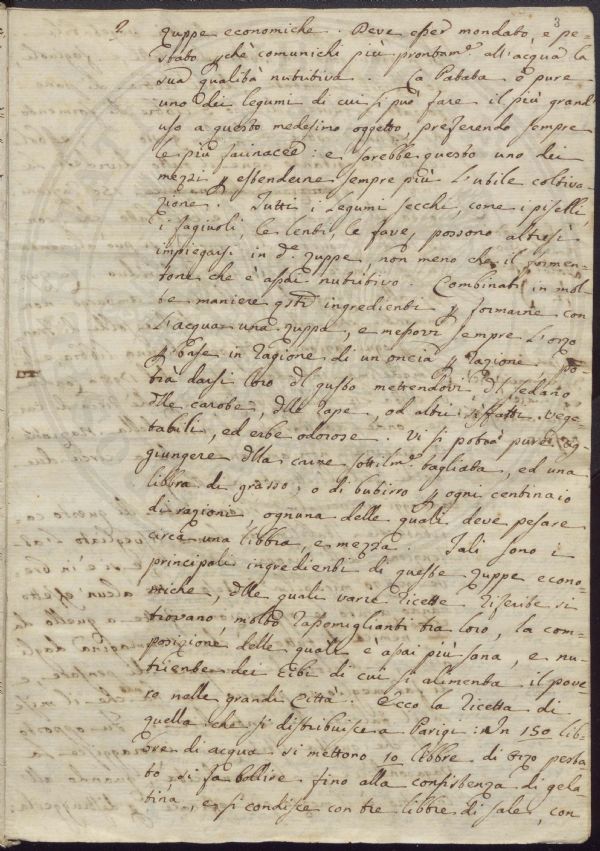 2 3
zuppe economiche. Deve esser mondato, e pe-
stato pchè comunichi più prontam.e all'acqua la
sua qualità nutritiva. La Patata è pure
uno dei legumi di cui si può fare il più grand'
uso a questo medesimo oggetto, preferendo sempre
le più farinacee: e sarebbe questo uno dei
mezzi p estenderne sempre più l'utile coltiva-
zione. Tutti i Legumi secchi, come i piselli,
i fagiuoli, le lenti, le fave, possono altresì
impiegarsi in d.e zuppe, non meno che il formen-
tone che è assai nutritivo. Combinati in mol-
te maniere qsti ingredienti p formarne con
l'acqua una zuppa, e messovi sempre l'orzo
p base in ragione di un oncia p razione, po-
trà darsi loro dl gusto mettendovi dl sedano
dlle carote, dlle rape, od altri sifatti vege-
tabili, ed erbe odorose. Vi si potrà pur ag-
giungere dlla carne sottilm.e tagliata, ed una
libbra di grasso, o di butirro p ogni centinaio
di razioni ognuna delle quali deve pesare
circa una libbra, e mezza. Tali sono i
principali ingredienti di queste zuppe econo-
miche, dlle quali varie ricette riferite si
trovano, molto rassomiglianti tra loro, la com-
posizione delle quali è assai più sana, e nu-
triente dei cibi di cui si alimenta il pove-
ro nelle grandi Città. Ecco la ricetta di
quella che si distribuisce a Parigi: In 150 lib-
bre di acqua si mettono 10 libbre di orzo pesta-
to, si fa bollire fino alla consistenza di gela-
tina, e si condisce con tre libbre di sale, con